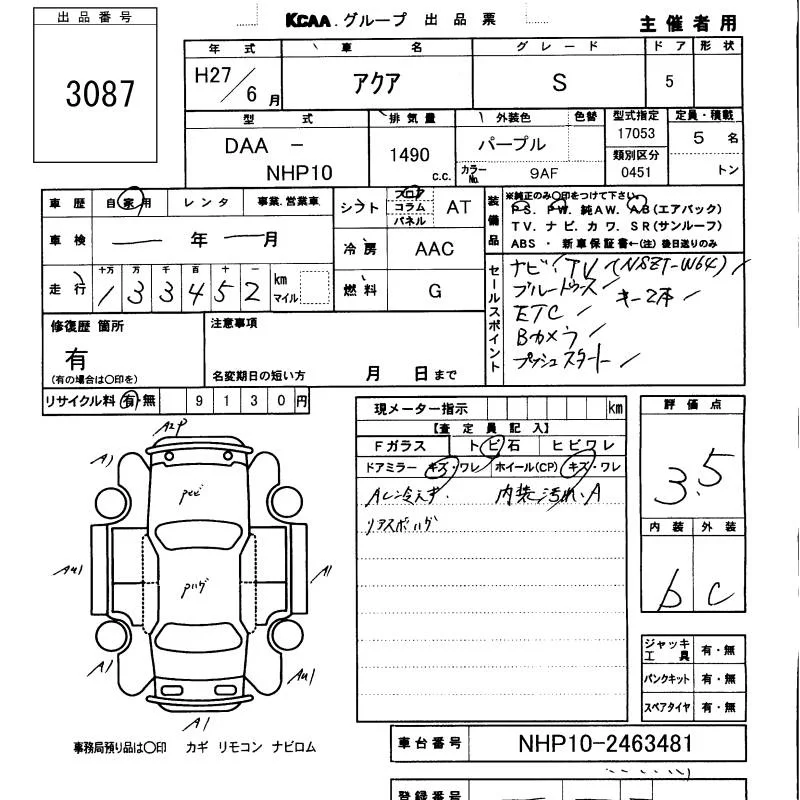 出品番号
3087
KCAA.グループ 出品票
主催者用
年式 車名 グレード ドア 形状
H27/6月 アクア S 5
型式 排気量 外装色 色替 型式指定 定員・積載
DAA - NHP10
1490 c.c.
パープル
カラーNo. 9AF
17053
類別区分
0451
5 名
トン
車歴 自家用 レンタ 事業.営業車
シフト フロア コラム パネル AT
車検 年 月
冷房 AAC
走行 十万 万 千 百 十 一
133452 km マイル
燃料 G
装備品
※純正のみ○印をつけて下さい
PS. PW. 純AW. AB(エアバック)
TV. ナビ. カワ. SR(サンルーフ)
ABS ・ 新車保証書←(注)後日送りのみ
セールスポイント
ナビ・TV (NSZT-W64)
ブルートゥース キー2本
ETC
Bカメラ
プッシュスタート
修復歴 箇所
有
(有の場合は○印を)
注意事項
名変期日の短い方 月 日まで
リサイクル料 有・無 9130円
現メーター指示 km
【査定員記入】
Fガラス トビ石 ヒビワレ
ドアミラー キズ・ワレ ホイール(CP) キズ・ワレ
AC冷えず. 内装汚れ.A
リアスポハゲ
評価点
3.5
内装 外装
b C
A2P
A1
Pトビ
Pハゲ
A1
A1
A1
ジャッキ工具 有・無
パンクキット 有・無
スペアタイヤ 有・無
事務局預り品は○印 カギ リモコン ナビロム
車台番号 NHP10-2463481
登録番号